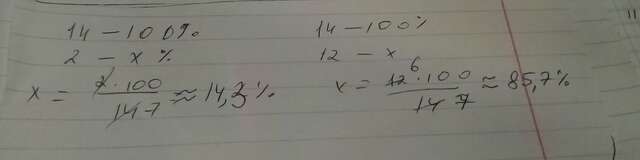 14 – 100%
2 – x %
x = 2·100 / 14 7 ≈ 14,3%
14 – 100%
12 – x
x = 12 6·100 / 14 7 ≈ 85,7%